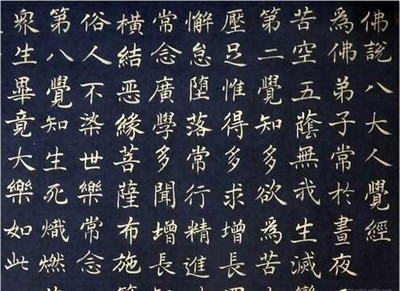 佛說八大人覺經
為佛弟子常於晝夜
苦空五蔭無我生滅
第二覺知多欲為苦
壓足惟得多求增長
懈怠墮落常行精進
常念廣學多聞增長
橫結惡緣菩薩布施
俗人不染世樂常念
第八覺知生死熾燃
眾生畢竟大樂如此